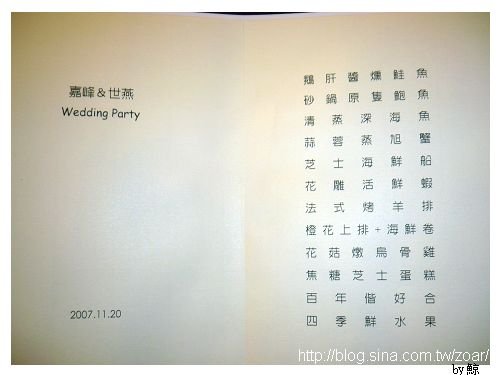 嘉峰&世燕
Wedding Party
2007.11.20
鵝肝醬燻鮭魚
砂鍋原隻鮑魚
清蒸深海魚
蒜蓉蒸旭蟹
芝士海鮮船
花雕活鮮蝦
法式烤羊排
橙花上排+海鮮卷
花菇燉烏骨雞
焦糖芝士蛋糕
百年偕好合
四季鮮水果
http://blog.sina.com.tw/zoar/
by鯨